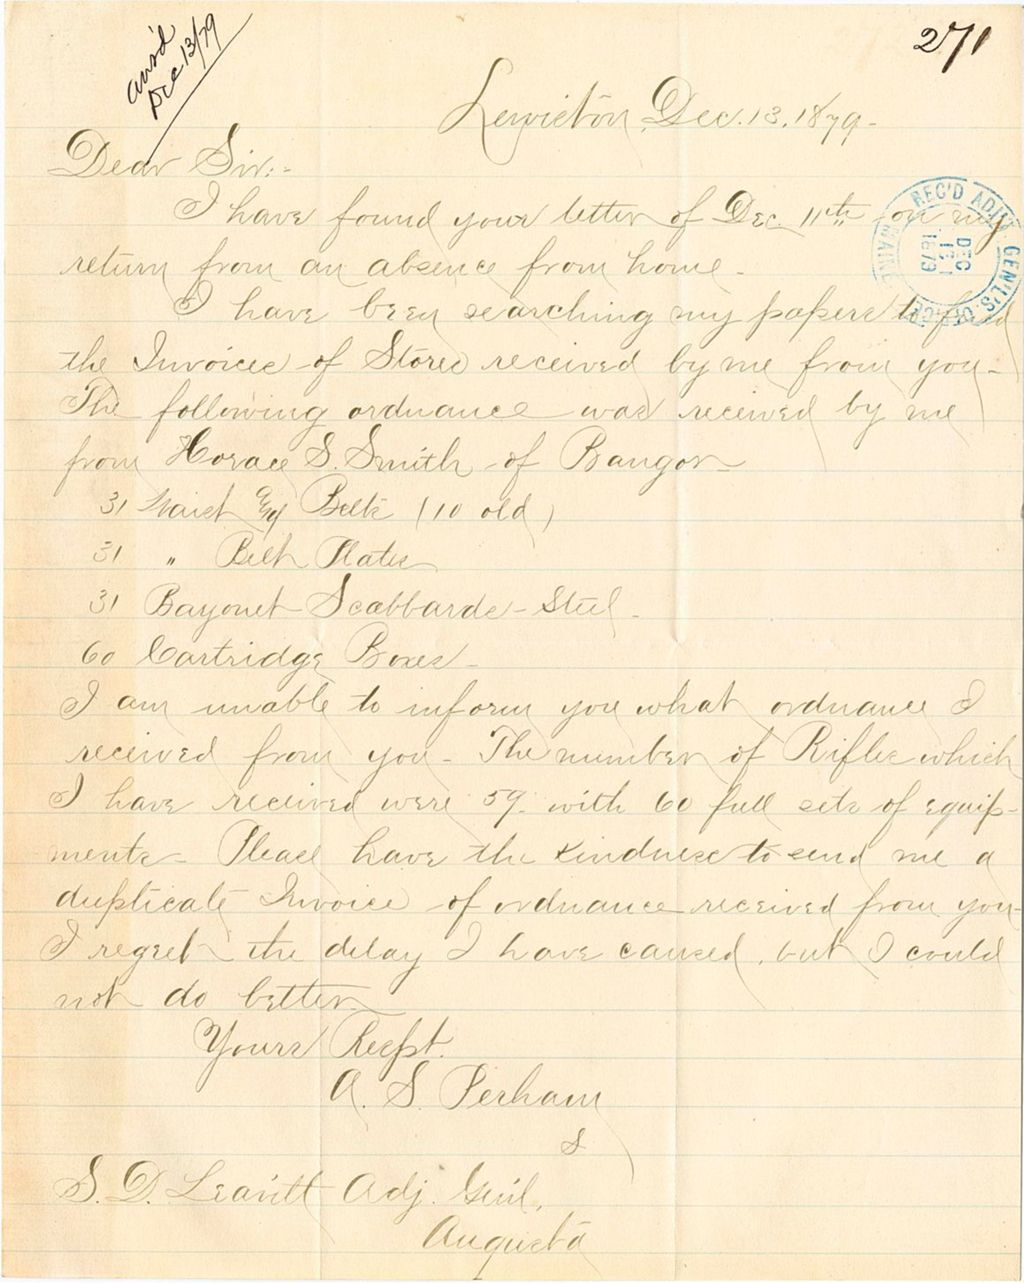 ans'd
Dec 13/79
271
Lewiston, Dec. 13, 1879-
Dear Sir:-
I have found your letter of Dec. 11th on my
return from an absence from home-
I have been searching my papers to find
the Invoices of Stores received by me from you-
The following ordnance was received by me
from Horace S. Smith of Bangor-
31 Waist Belts (10 old)
31 " Belt Plates
31 Bayonet Scabbards - Steel-
60 Cartridge Boxes-
I am unable to inform you what ordnance I
received from you- The number of Rifles which
I have received were 59- with 60 full sets of equip-
ments- Please have the kindness to send me a
duplicate Invoice of ordnance received from you-
I regret the delay I have caused, but I could
not do better-
Yours Respt.
A. S. Perham
S. D. Leavitt Adj. Genl.
Augusta
REC'D ADJT. GENL'S. OFFICE
MAINE
DEC
13
1879